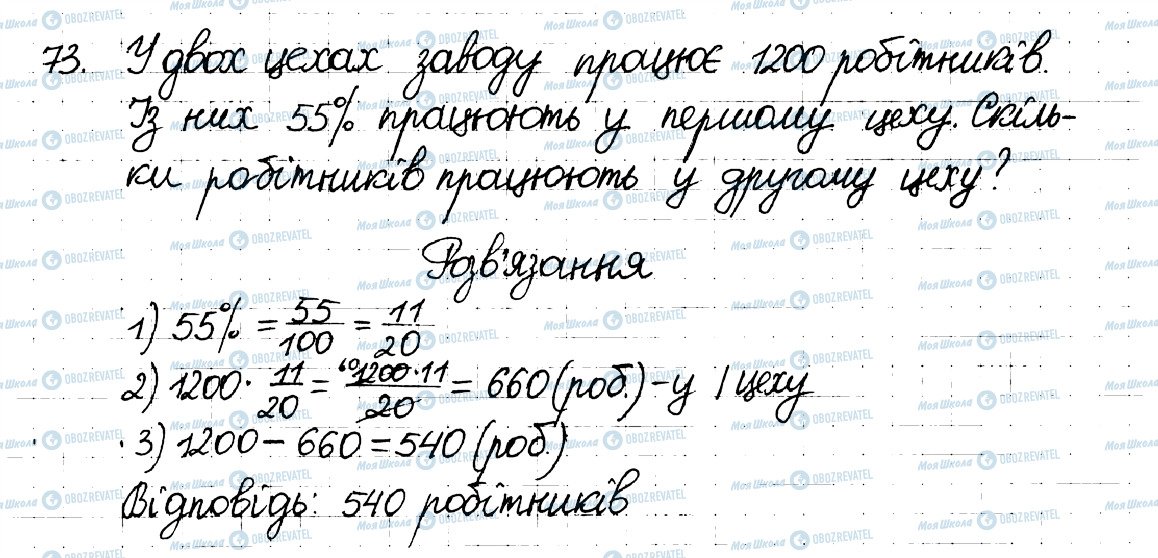 73. У двох цехах заводу працює 1200 робітників.
Із них 55% працюють у першому цеху. Скіль-
ки робітників працюють у другому цеху?
Розв'язання
1) 55% = 55/100 = 11/20
2) 1200 · 11/20 = 60 1200·11/20 = 660 (роб.) - у I цеху
3) 1200 - 660 = 540 (роб.)
Відповідь: 540 робітників